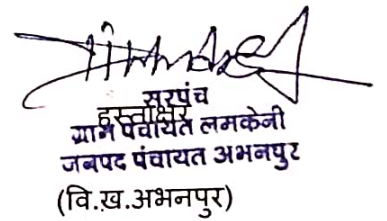 सरपंच
हस्ताक्षर
ग्राम पंचायत लमकेनी
जनपद पंचायत अभनपुर
(वि.ख.अभनपुर)